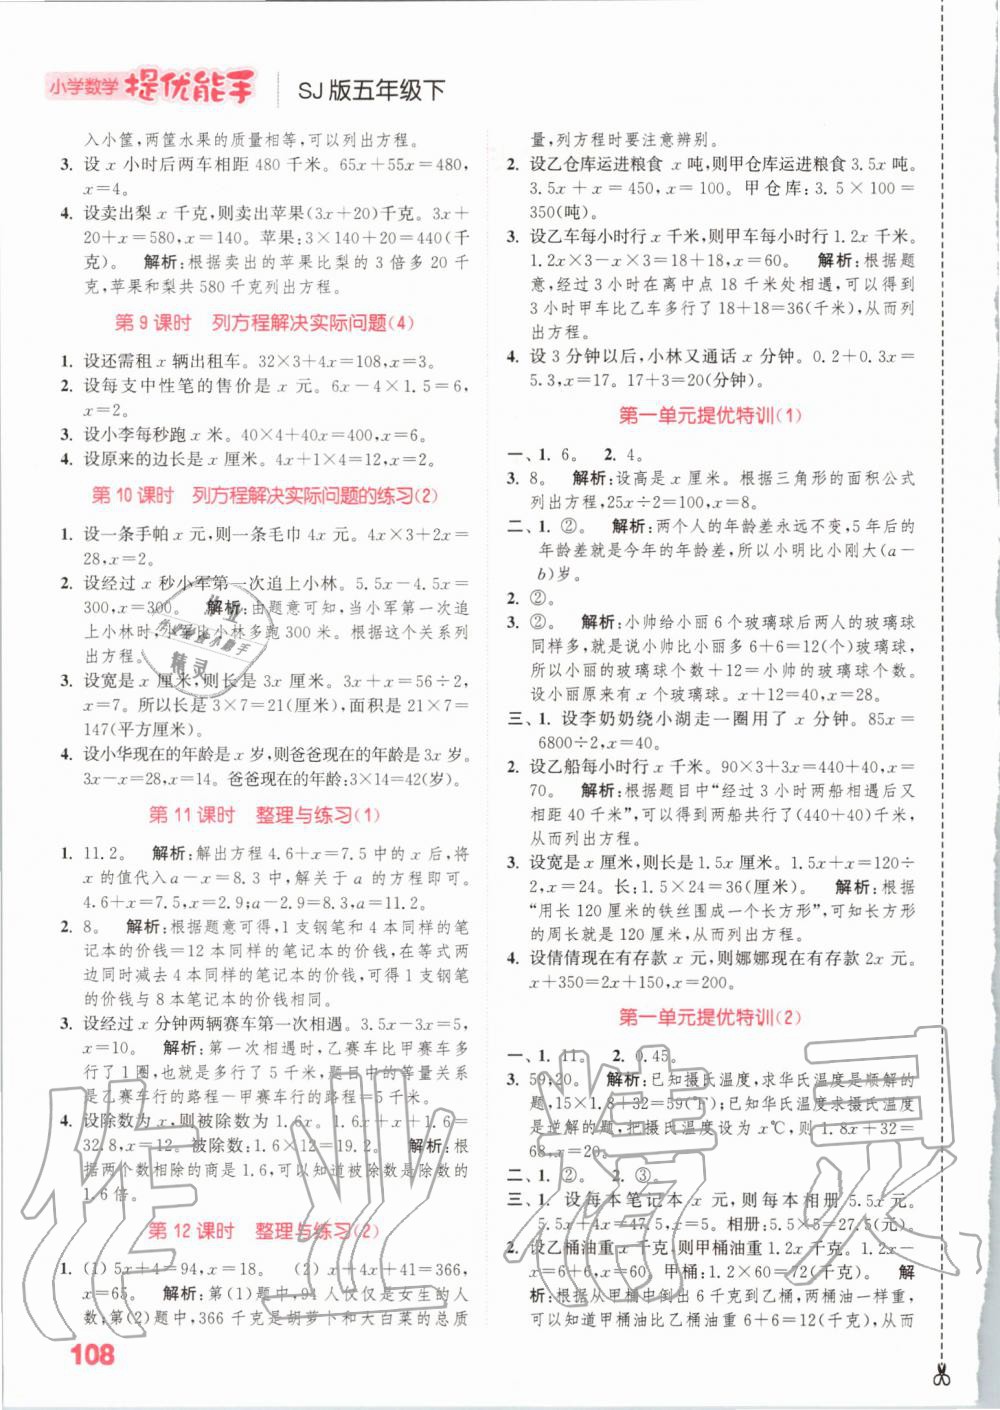 小学数学 提优能手 SJ版五年级下
入小筐,两筐水果的质量相等,可以列出方程。
3. 设 x 小时后两车相距 480 千米。65x+55x=480,
x=4。
4. 设卖出梨 x 千克,则卖出苹果(3x+20)千克。3x+
20+x=580,x=140。苹果:3×140+20=440(千
克)。 解析:根据卖出的苹果比梨的 3 倍多 20 千
克,苹果和梨共 580 千克列出方程。
第 9 课时 列方程解决实际问题(4)
1. 设还需租 x 辆出租车。32×3+4x=108,x=3。
2. 设每支中性笔的售价是 x 元。6x-4×1.5=6,
x=2。
3. 设小李每秒跑 x 米。40×4+40x=400,x=6。
4. 设原来的边长是 x 厘米。4x+1×4=12,x=2。
第 10 课时 列方程解决实际问题的练习(2)
1. 设一条手帕 x 元,则一条毛巾 4x 元。4x×3+2x=
28,x=2。
2. 设经过 x 秒小军第一次追上小林。5.5x-4.5x=
300,x=300。 解析:由题意可知,当小军第一次追
上小林时,小军比小林多跑 300 米。根据这个关系列
出方程。
3. 设宽是 x 厘米,则长是 3x 厘米。3x+x=56÷2,
x=7。所以长是 3×7=21(厘米),面积是 21×7=
147(平方厘米)。
4. 设小华现在的年龄是 x 岁,则爸爸现在的年龄是 3x 岁。
3x-x=28,x=14。爸爸现在的年龄:3×14=42(岁)。
第 11 课时 整理与练习(1)
1. 11.2。 解析:解出方程 4.6+x=7.5 中的 x 后,将
x 的值代入 a-x=8.3 中,解关于 a 的方程即可。
4.6+x=7.5,x=2.9;a-2.9=8.3,a=11.2。
2. 8。 解析:根据题意可得,1 支钢笔和 4 本同样的笔
记本的价钱=12 本同样的笔记本的价钱,在等式两
边同时减去 4 本同样的笔记本的价钱,可得 1 支钢笔
的价钱与 8 本笔记本的价钱相同。
3. 设经过 x 分钟两辆赛车第一次相遇。3.5x-3x=5,
x=10。 解析:第一次相遇时,乙赛车比甲赛车多
行了 1 圈,也就是多行了 5 千米,题目中的等量关系
是乙赛车行的路程-甲赛车行的路程=5 千米。
4. 设除数为 x,则被除数为 1.6x。1.6x+x+1.6=
32.8,x=12。被除数:1.6×12=19.2。 解析:根
据两个数相除的商是 1.6,可以知道被除数是除数的
1.6 倍。
第 12 课时 整理与练习(2)
1. (1) 5x+4=94,x=18。 (2) x+4x+41=366,
x=65。 解析:第(1)题中,94 人仅仅是女生的人
数;第(2)题中,366 千克是胡萝卜和大白菜的总质
量,列方程时要注意辨别。
2. 设乙仓库运进粮食 x 吨,则甲仓库运进粮食 3.5x 吨。
3.5x+x=450,x=100。甲仓库:3.5×100=
350(吨)。
3. 设乙车每小时行 x 千米,则甲车每小时行 1.2x 千米。
1.2x×3-x×3=18+18,x=60。 解析:根据题
意,经过 3 小时在离中点 18 千米处相遇,可以得到
3 小时甲车比乙车多行了 18+18=36(千米),从而列
出方程。
4. 设 3 分钟以后,小林又通话 x 分钟。0.2+0.3x=
5.3,x=17。17+3=20(分钟)。
第一单元提优特训(1)
一、1. 6。 2. 4。
3. 8。 解析:设高是 x 厘米。根据三角形的面积公式
列出方程,25x÷2=100,x=8。
二、1. ②。 解析:两个人的年龄差永远不变,5 年后的
年龄差就是今年的年龄差,所以小明比小刚大(a-
b)岁。
2. ②。
3. ②。 解析:小帅给小丽 6 个玻璃球后两人的玻璃球
同样多,就是说小帅比小丽多 6+6=12(个)玻璃球,
所以小丽的玻璃球个数+12=小帅的玻璃球个数。
设小丽原来有 x 个玻璃球。x+12=40,x=28。
三、1. 设李奶奶绕小湖走一圈用了 x 分钟。85x=
6800÷2,x=40。
2. 设乙船每小时行 x 千米。90×3+3x=440+40,x=
70。 解析:根据题目中“经过 3 小时两船相遇后又
相距 40 千米”,可以得到两船共行了(440+40)千米,
从而列出方程。
3. 设宽是 x 厘米,则长是 1.5x 厘米。1.5x+x=120÷
2,x=24。长:1.5×24=36(厘米)。 解析:根据
“用长 120 厘米的铁丝围成一个长方形”,可知长方形
的周长是 120 厘米,从而列出方程。
4. 设倩倩现在有存款 x 元,则娜娜现在有存款 2x 元。
x+350=2x+150,x=200。
第一单元提优特训(2)
一、1. 11。 2. 0.45。
3. 59;20。 解析:已知摄氏温度,求华氏温度是顺解的
题,15×1.8+32=59(℉);已知华氏温度求摄氏温度
是逆解的题,把摄氏温度设为 x℃,则 1.8x+32=
68,x=20。
二、1. ②。 2. ③。
三、1. 设每本笔记本 x 元,则每本相册 5.5x 元。
5.5x+4x=47.5,x=5。相册:5.5×5=27.5(元)。
2. 设乙桶油重 x 千克,则甲桶油重 1.2x 千克。1.2x-
x=6+6,x=60。甲桶:1.2×60=72(千克)。 解
析:从甲桶中倒出 6 千克到乙桶,两桶油一样重,可
以知道甲桶油比乙桶油重 6+6=12(千克),从而
108
作业精灵